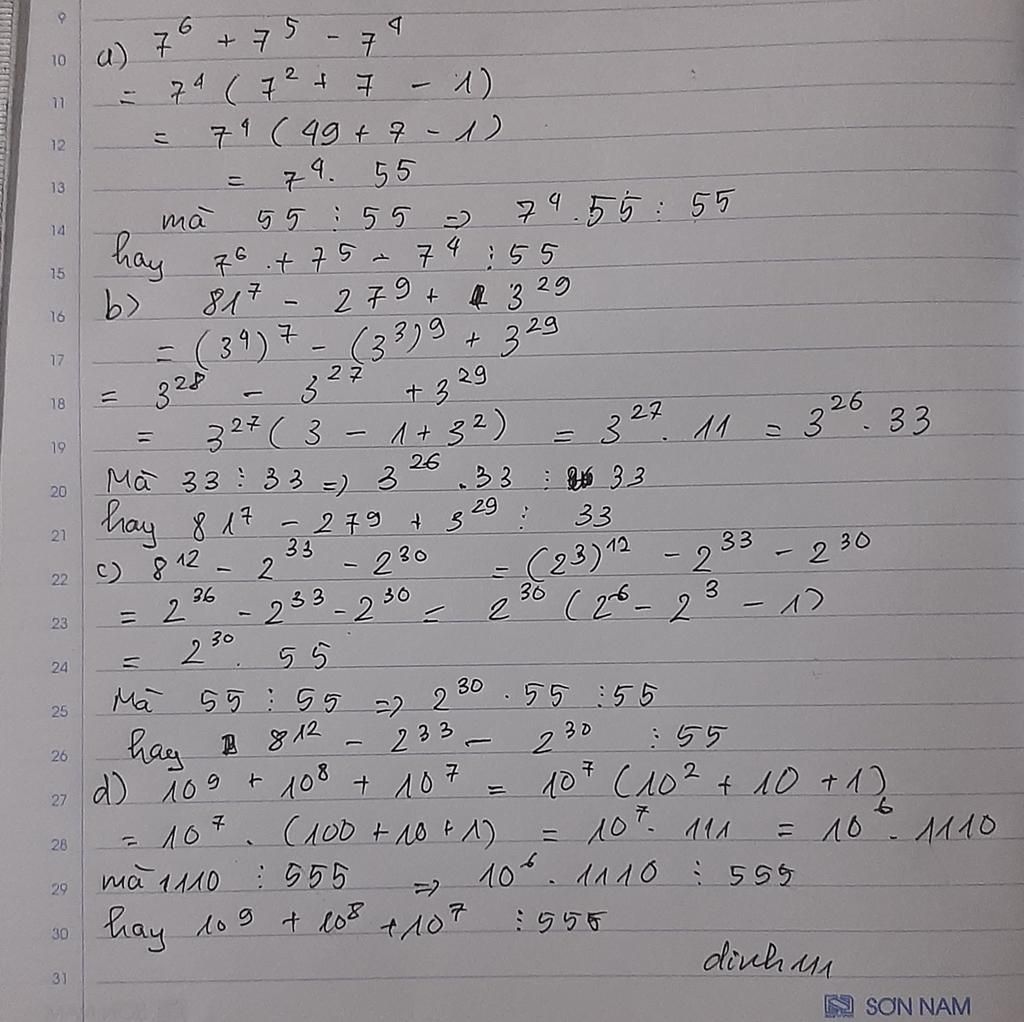 9
10 a) 7⁶ + 7⁵ - 7⁴
11 = 7⁴ ( 7² + 7 - 1)
12 = 7⁴ ( 49 + 7 - 1)
13 = 7⁴. 55
14 mà 55 ⋮ 55 => 7⁴.55 ⋮ 55
15 hay 7⁶ + 7⁵ - 7⁴ ⋮ 55
16 b) 81⁷ - 27⁹ + 3²⁹
17 = (3⁴)⁷ - (3³)⁹ + 3²⁹
18 = 3²⁸ - 3²⁷ + 3²⁹
19 = 3²⁷( 3 - 1 + 3²) = 3²⁷. 11 = 3²⁶. 33
20 Mà 33 ⋮ 33 => 3²⁶.33 ⋮ 33
21 hay 81⁷ - 27⁹ + 3²⁹ ⋮ 33
22 c) 8¹² - 2³³ - 2³⁰ = (2³)¹² - 2³³ - 2³⁰
23 = 2³⁶ - 2³³ - 2³⁰ = 2³⁰ (2⁶ - 2³ - 1)
24 = 2³⁰. 55
25 Mà 55 ⋮ 55 => 2³⁰. 55 ⋮ 55
26 hay 8¹² - 2³³ - 2³⁰ ⋮ 55
27 d) 10⁹ + 10⁸ + 10⁷ = 10⁷ (10² + 10 + 1)
28 = 10⁷. (100 + 10 + 1) = 10⁷. 111 = 10⁶. 1110
29 mà 1110 ⋮ 555 => 10⁶. 1110 ⋮ 555
30 hay 10⁹ + 10⁸ + 10⁷ ⋮ 555
31
SƠN NAM